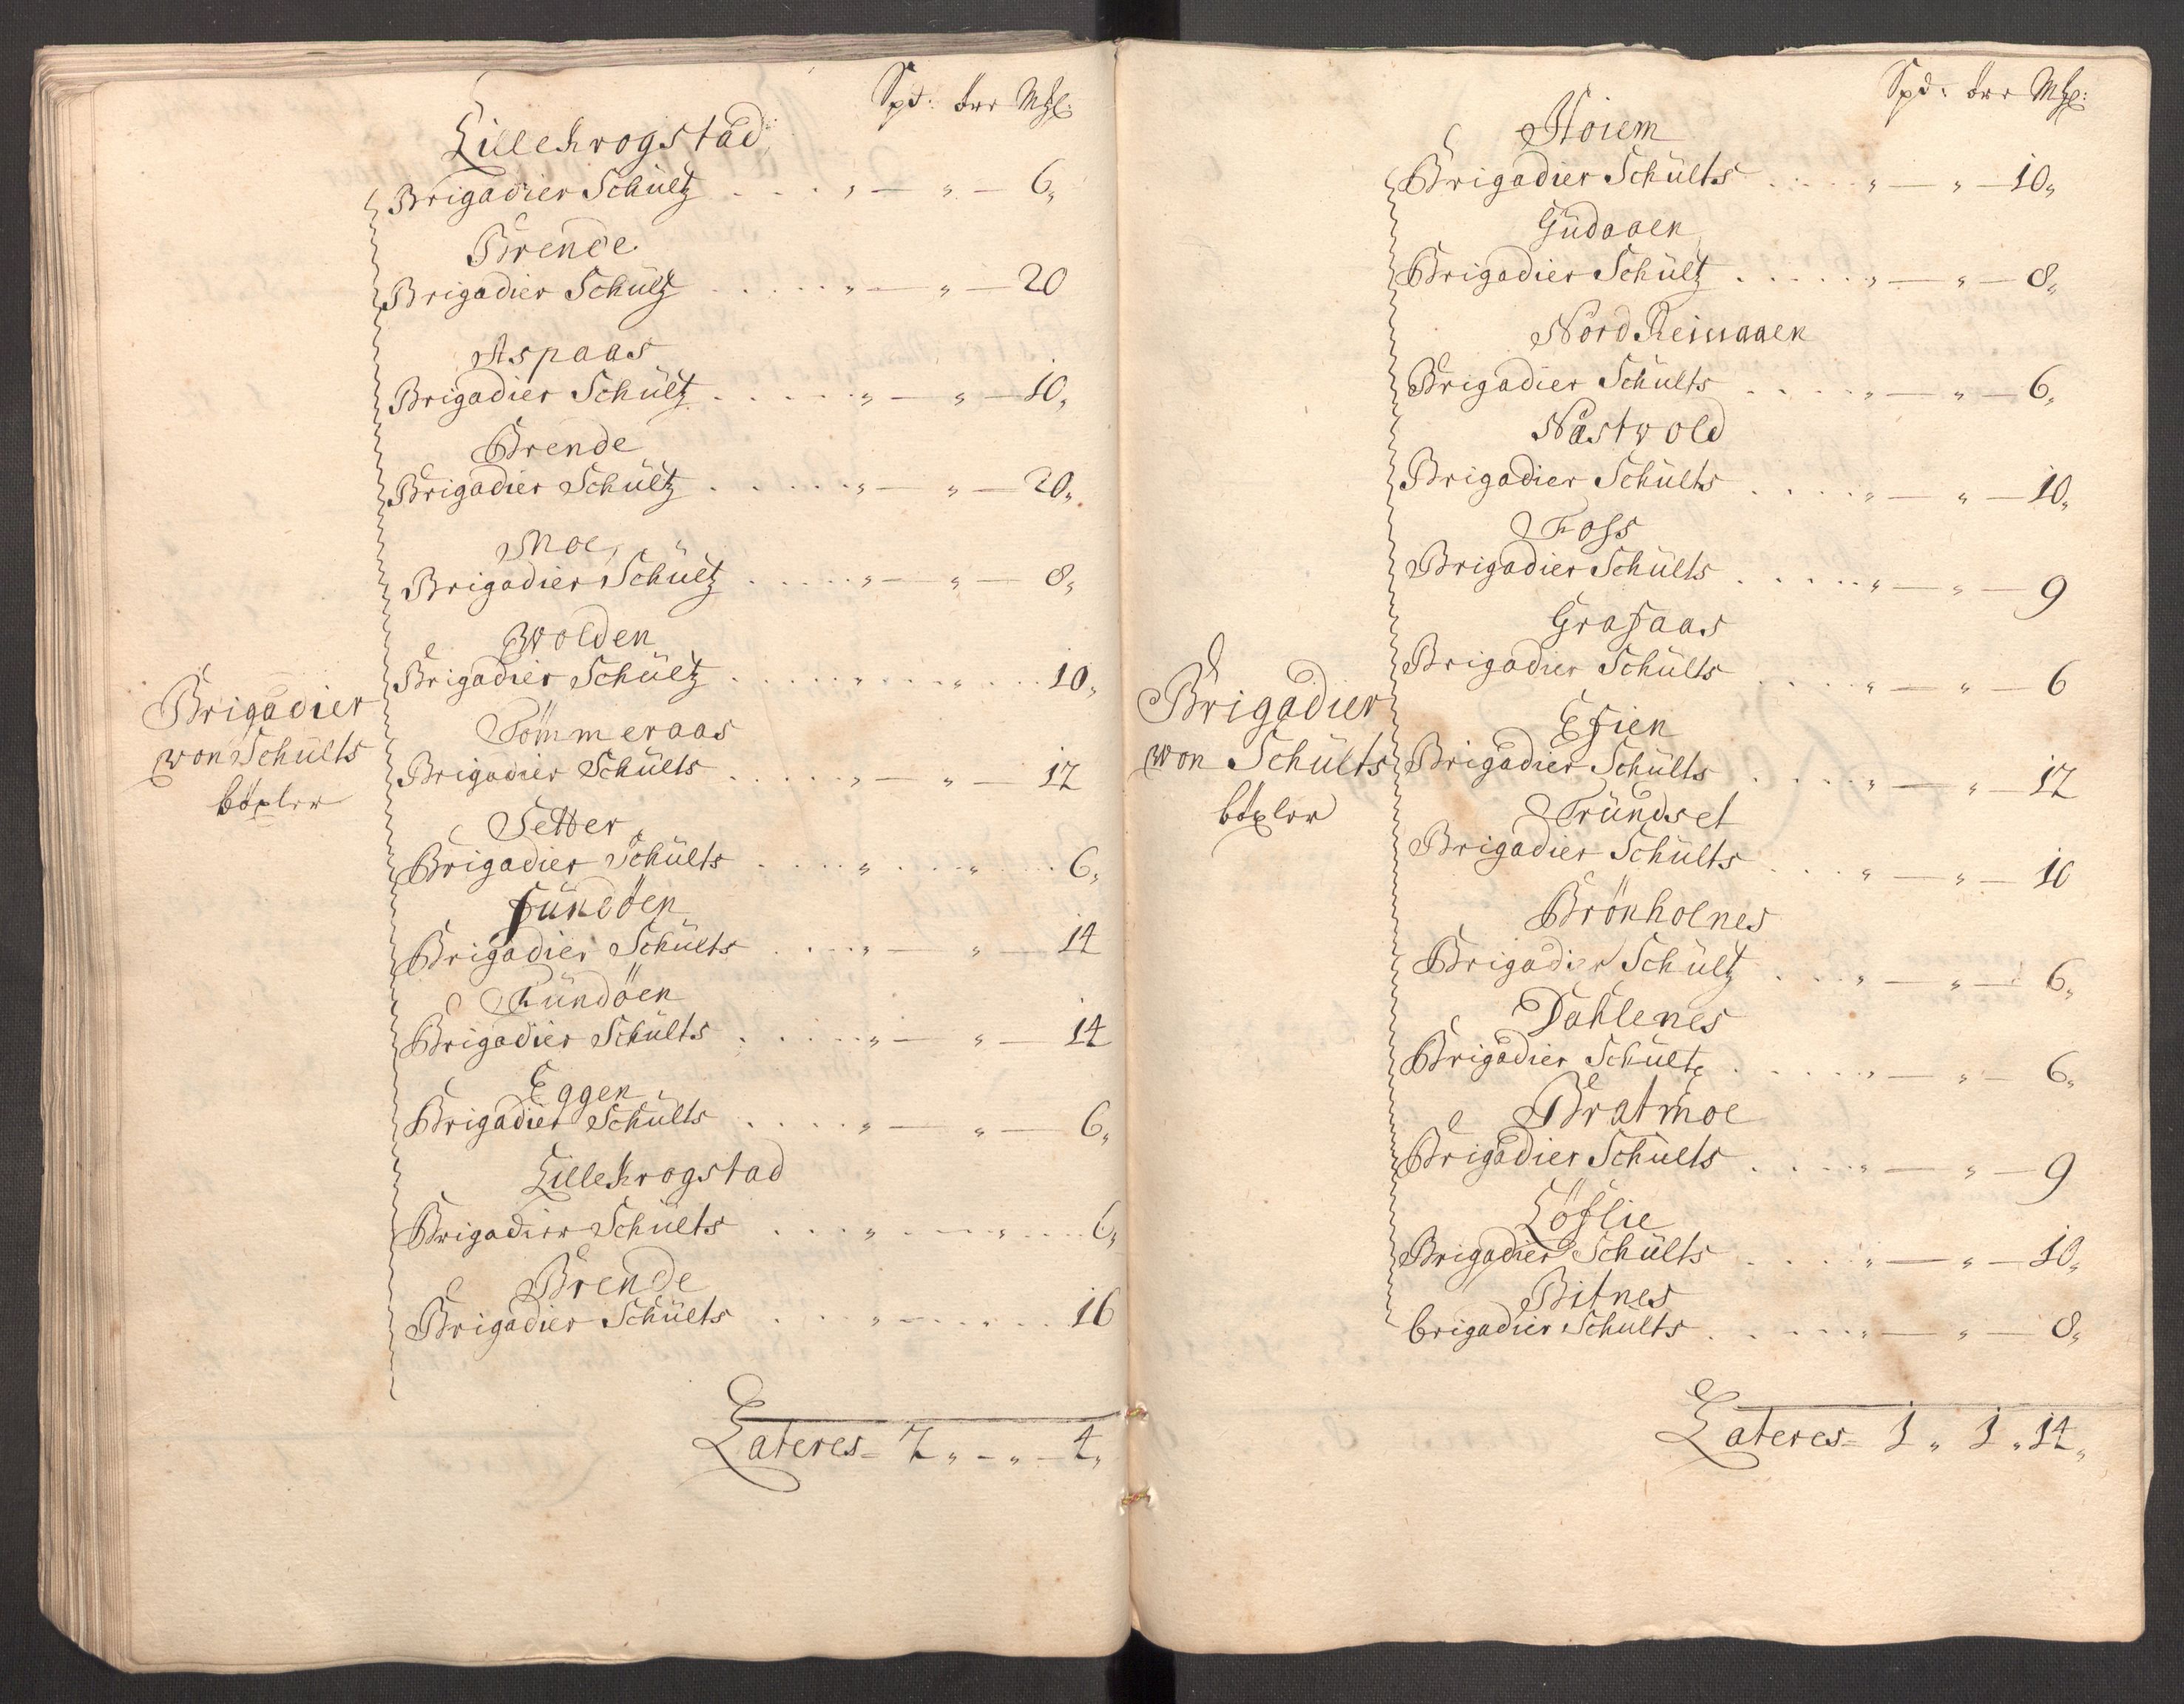 Spd: ørr Mhl:
Lillekrogstad
Brigadier Schültz . . . . " — " — 6"
Brende
Brigadier Schültz . . . . . " — " — 20
Aspaas
Brigadier Schültz . . . . . " — " — 10"
Brende
Brigadier Schültz . . . . . " — " — 20"
Moe
Brigadier Schültz . . . . . " — " — 8"
Wolden
Brigadier Schültz . . . . . " . . . " . . . 10"
Tömmeraas
Brigadier Schülts . . . . . " — " — 12
Setter
Brigadier Schülts . . . . " . . . " . . . 6"
Sündöen
Brigadier Schülts . . . . " — " — 14
Sündöen
Brigadier Schülts . . . . . " — " — 14
Eggen
Brigadier Schülts . . . . " — " — 6"
Lillekrogstad
Brigadier Schülts . . . . " . . . " . . . 6"
Brende
Brigadier Schülts . . . " . . . " . . . 16
Brigadier
von Schülts
böxler
Lateres = 7 " - " - 4"
Spd: ørr Mhl:
Hoiem
Brigadier Schülts . . . . " — " — 10"
Güdaaen
Brigadier Schültz . . . . . " — " — 8"
Nord
Brigadier Schülts . . . . " — " — 6"
Nästwold
Brigadier Schülts . . . . " — " — 10"
Foss
Brigadier Schülts . . . . . " — " — 9
Grafaas
Brigadier Schülts . . . . " — " — 6
Efien
Brigadier Schülts . . . . " — " — 12
Tründset
Brigadier Schülts . . . " — " — 10
Brönholnes
Brigadier Schültz . . . " — " — 6"
Dahlenes
Brigadier Schültz . . . . . " — " — 6"
Bratmoe
Brigadier Schülts . . . . " — " — 9
Löflie
Brigadier Schülts . . . . " — " — 10"
Bitnes
brigadier Schülts . . . . . " — " — 8"
Brigadier
von Schülts
böxler
Lateres = 1 " 1 " 14"